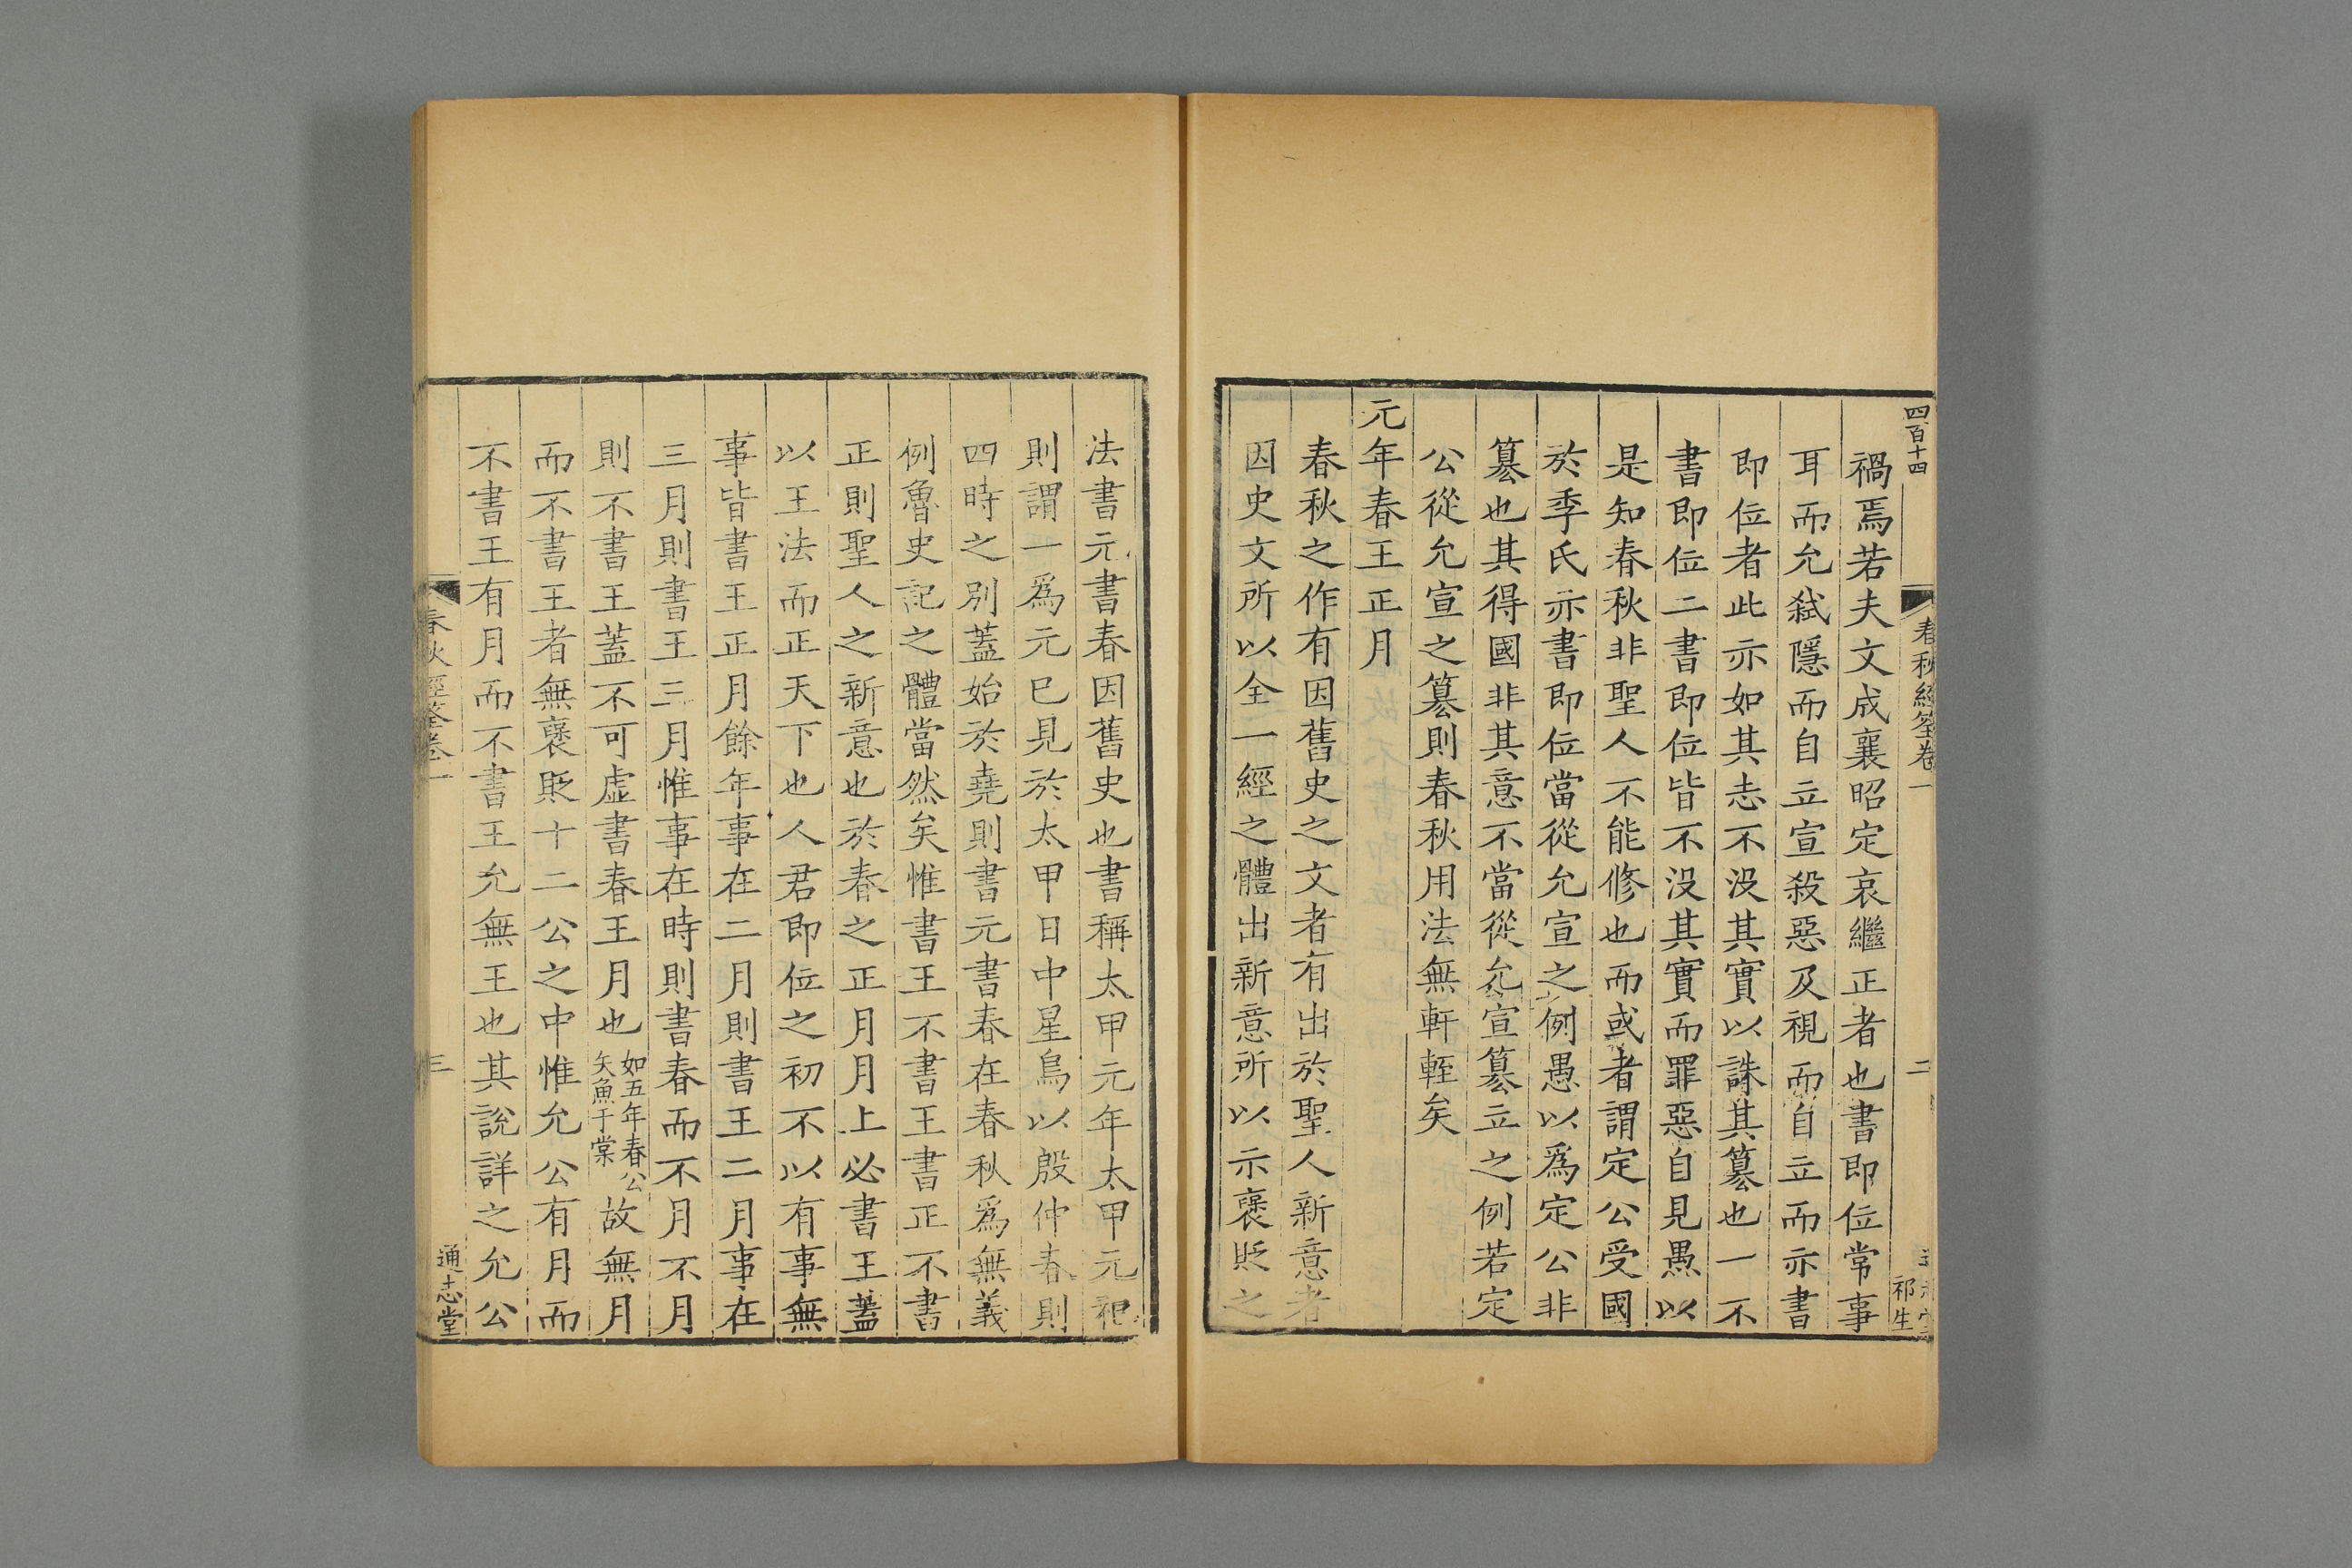 四百十四
春秋經筌卷一
二
祁生
禍焉若夫文成襄昭定哀繼正者也書即位常事
耳而允弑隱而自立宣殺惡及視而自立而亦書
即位者此亦如其志不没其實以誅其簒也一不
書即位二書即位皆不没其實而罪惡自見愚以
是知春秋非聖人不能修也而或者謂定公受國
於季氏亦書即位當從允宣之例愚以爲定公非
簒也其得國非其意不當從允宣簒立之例若定
公從允宣之簒則春秋用法無軒輊矣
元年春王正月
春秋之作有因舊史之文者有出於聖人新意者
因史文所以全一經之體出新意所以示襃貶之
法書元書春因舊史也書稱太甲元年太甲元祀
則謂一爲元已見於太甲日中星鳥以殷仲春則
四時之別蓋始於堯則書元書春在春秋爲無義
例魯史記之體當然矣惟書王不書王書正不書
正則聖人之新意也於春之正月月上必書王蓋
以王法而正天下也人君即位之初不以有事無
事皆書王正月餘年事在二月則書王二月事在
三月則書王三月惟事在時則書春而不月不月
則不書王蓋不可虚書春王月也如五年春公矢魚于棠故無月
而不書王者無襃貶十二公之中惟允公有月而
不書王有月而不書王允無王也其說詳之允公
春秋經筌卷一
三
通志堂